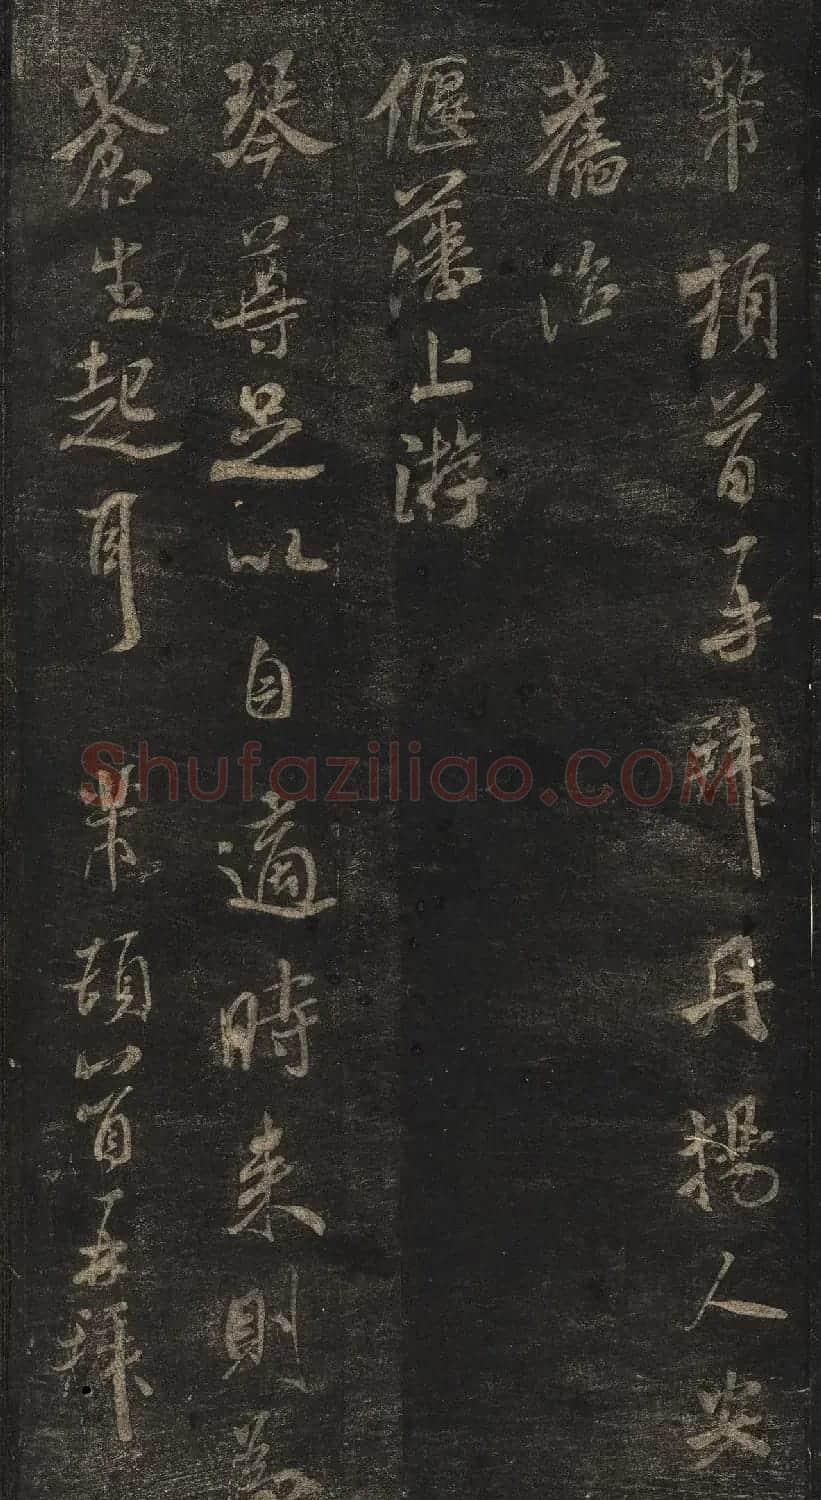 芾頓首再拜丹楊人安
舊治
偃藩上游
琴尊足以自適時来則為
蒼生起耳 芾頓首再拜
Shufaziliao.COM